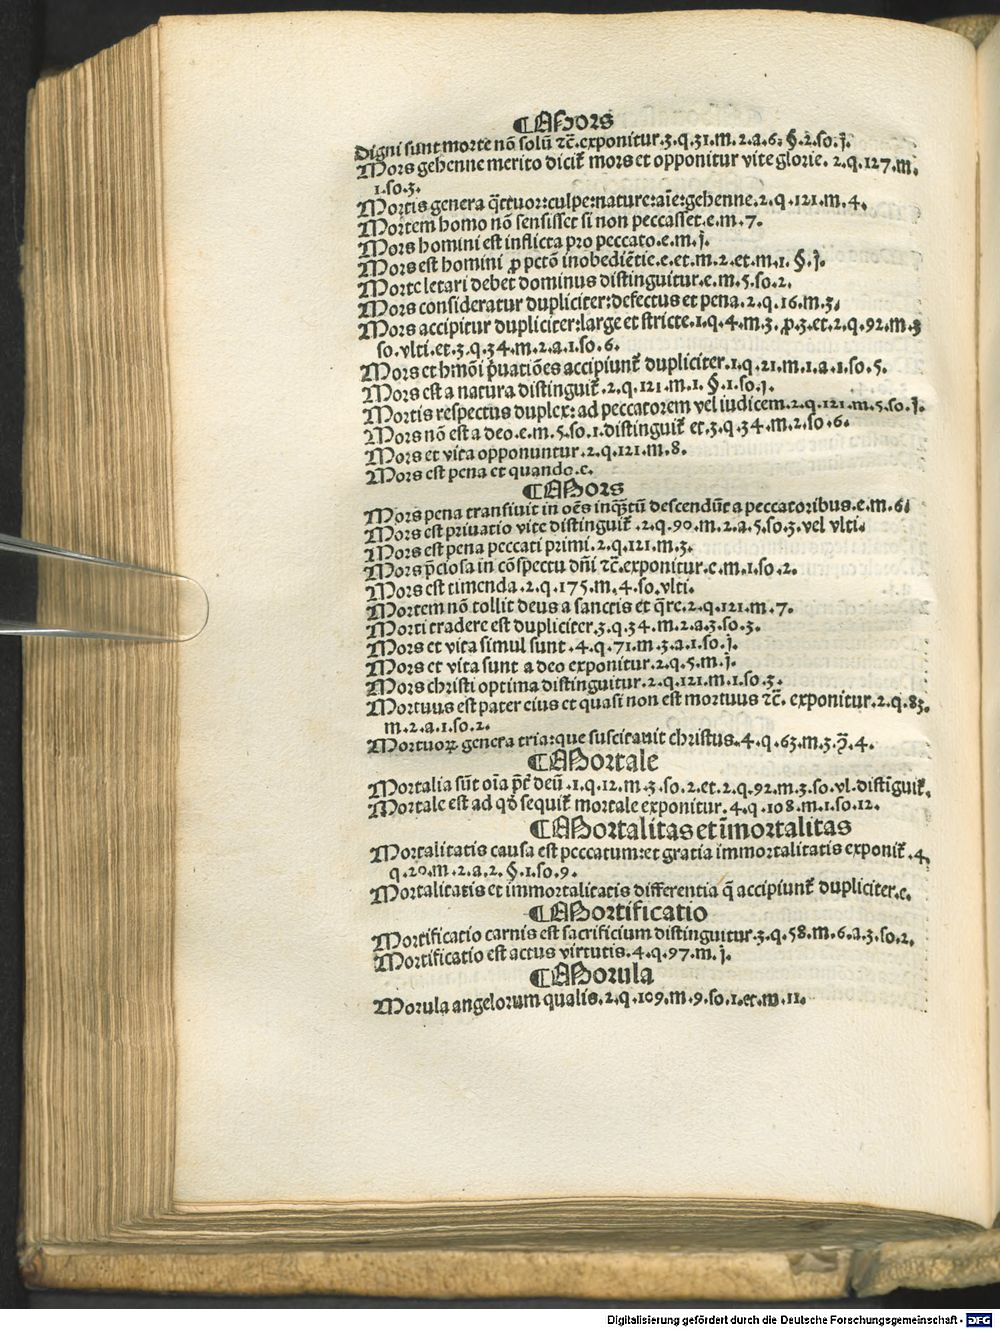 ¶Mors
Digni sunt morte nō solū ⁊c̄.exponitur.3.q.31.m.2.a.6.§.2.so.j.
Mors gehenne merito dicit᷑ mors et opponitur vite glorie. 2.q.127.m.
1.so.3.
Mortis genera q̄ttuor:culpe:nature:aīe:gehenne.2.q.121.m.4.
Mortem homo nō sensisset si non peccasset.e.m.7.
Mors homini est inflicta pro peccato.e.m.j.
Mors est homini ꝓ pctō inobediētie.e.et.m.2.et.m.1.§.j.
Morte letari debet dominus distinguitur.e.m.5.so.2.
Mors consideratur dupliciter:defectus et pena.2.q.16.m.3.
Mors accipitur dupliciter:large et stricte.1.q.4.m.3.ꝓ.3.et.2.q.92.m.3
so.vlti.et.3.q.34.m.2.a.1.so.6.
Mors et hmōi p̄uatiōes accipiunt᷑ dupliciter.1.q.21.m.1.a.1.so.5.
Mors est a natura distinguit᷑.2.q.121.m.1.§.1.so.1.
Mortis respectus duplex:ad peccatorem vel iudicem.2.q.121.m.5.so.j.
Mors nō est a deo.e.m.5.so.1.distinguit᷑ et.3.q.34.m.2.so.6.
Mors et vita opponuntur.2.q.121.m.8.
Mors est pena et quando.e.
¶Mors
Mors pena transiuit in oēs inqꝫtū descendūt a peccatoribus.e.m.6.
Mors est priuatio vite distinguit᷑.2.q.90.m.2.a.5.so.3.vel vlti.
Mors est pena peccati primi.2.q.121.m.3.
Mors p̄ciosa in cōspectu dn̄i ⁊c̄.exponitur.e.m.1.so.2.
Mors est timenda.2.q.175.m.4.so.vlti.
Mortem nō tollit deus a sanctis et q̄re.2.q.121.m.7.
Morti tradere est dupliciter.3.q.34.m.2.a.3.so.3.
Mors et vita simul sunt.4.q.71.m.3.a.1.so.j.
Mors et vita sunt a deo exponitur.2.q.5.m.j.
Mors christi optima distinguitur.2.q.121.m.1.so.3.
Mortuus est pater eius et quasi non est mortuus ⁊c̄. exponitur.2.q.83.
m.2.a.1.so.2.
Mortuoꝝ genera tria:que suscitauit christus.4.q.63.m.3.ꝙ̄.4.
¶Mortale
Mortalia sūt oīa p̄t deū.1.q.12.m.3.so.2.et.2.q.92.m.3.so.vl.distīguit᷑.
Mortale est ad qd̄ sequit᷑ mortale exponitur.4.q.108.m.1.so.12.
¶Mortalitas et īmortalitas
Mortalitatis causa est peccatum:et gratia immortalitatis exponit᷑.4.
q.20.m.2.a.2.§.1.so.9.
Mortalitatis et immortalitatis differentia q̄ accipiunt᷑ dupliciter.e.
¶Mortificatio
Mortificatio carnis est sacrificium distinguitur.3.q.58.m.6.a.3.so.2.
Mortificatio est actus virtutis.4.q.97.m.j.
¶Morula
Morula angelorum qualis.2.q.109.m.9.so.1.et.m.11.
Digitalisierung gefördert durch die Deutsche Forschungsgemeinschaft - DFG